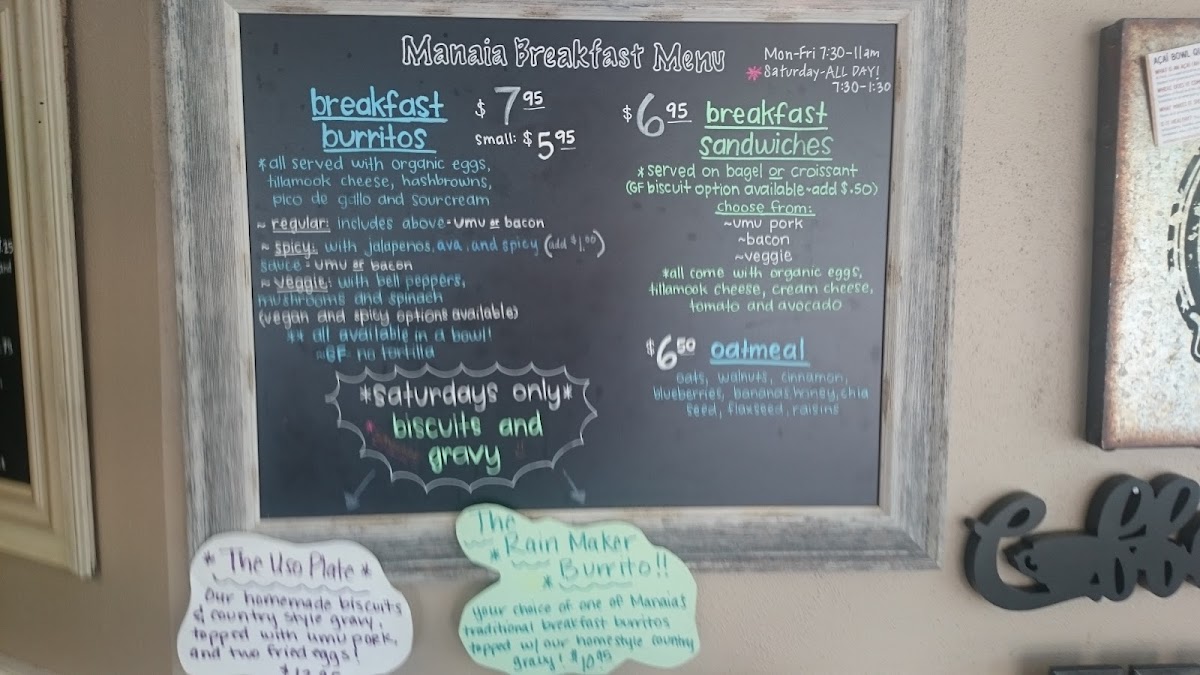 Manaia Breakfast Menu
Mon-Fri 7:30-11am
*Saturday-ALL DAY!
7:30-1:30
breakfast
burritos
$7.95
small: $5.95
*all served with organic eggs,
tillamook cheese, hashbrowns,
pico de gallo and sour cream
~ regular: includes above - umu or bacon
~ spicy: with jalapenos, ava, and spicy (add $1.00)
sauce - umu or bacon
~ veggie: with bell peppers,
mushrooms and spinach
(vegan and spicy options available)
** all available in a bowl!
~GF- no tortilla
*Saturdays only*
biscuits and
gravy
$6.95 breakfast
sandwiches
*served on bagel or croissant
(GF biscuit option available-add $.50)
choose from:
~umu pork
~bacon
~veggie
*all come with organic eggs,
tillamook cheese, cream cheese,
tomato and avocado
$6.50 oatmeal
oats, walnuts, cinnamon,
blueberries, bananas, honey, chia
seed, flaxseed, raisins
* The Uso Plate *
Our homemade biscuits
& country style gravy,
topped with umu pork,
and two fried eggs!
The
*Rain Maker
* Burrito!!
your choice of one of Manaia's
traditional breakfast burritos
topped w/ our homestyle country
gravy! $10.95
ACAI BOWL
Coffe